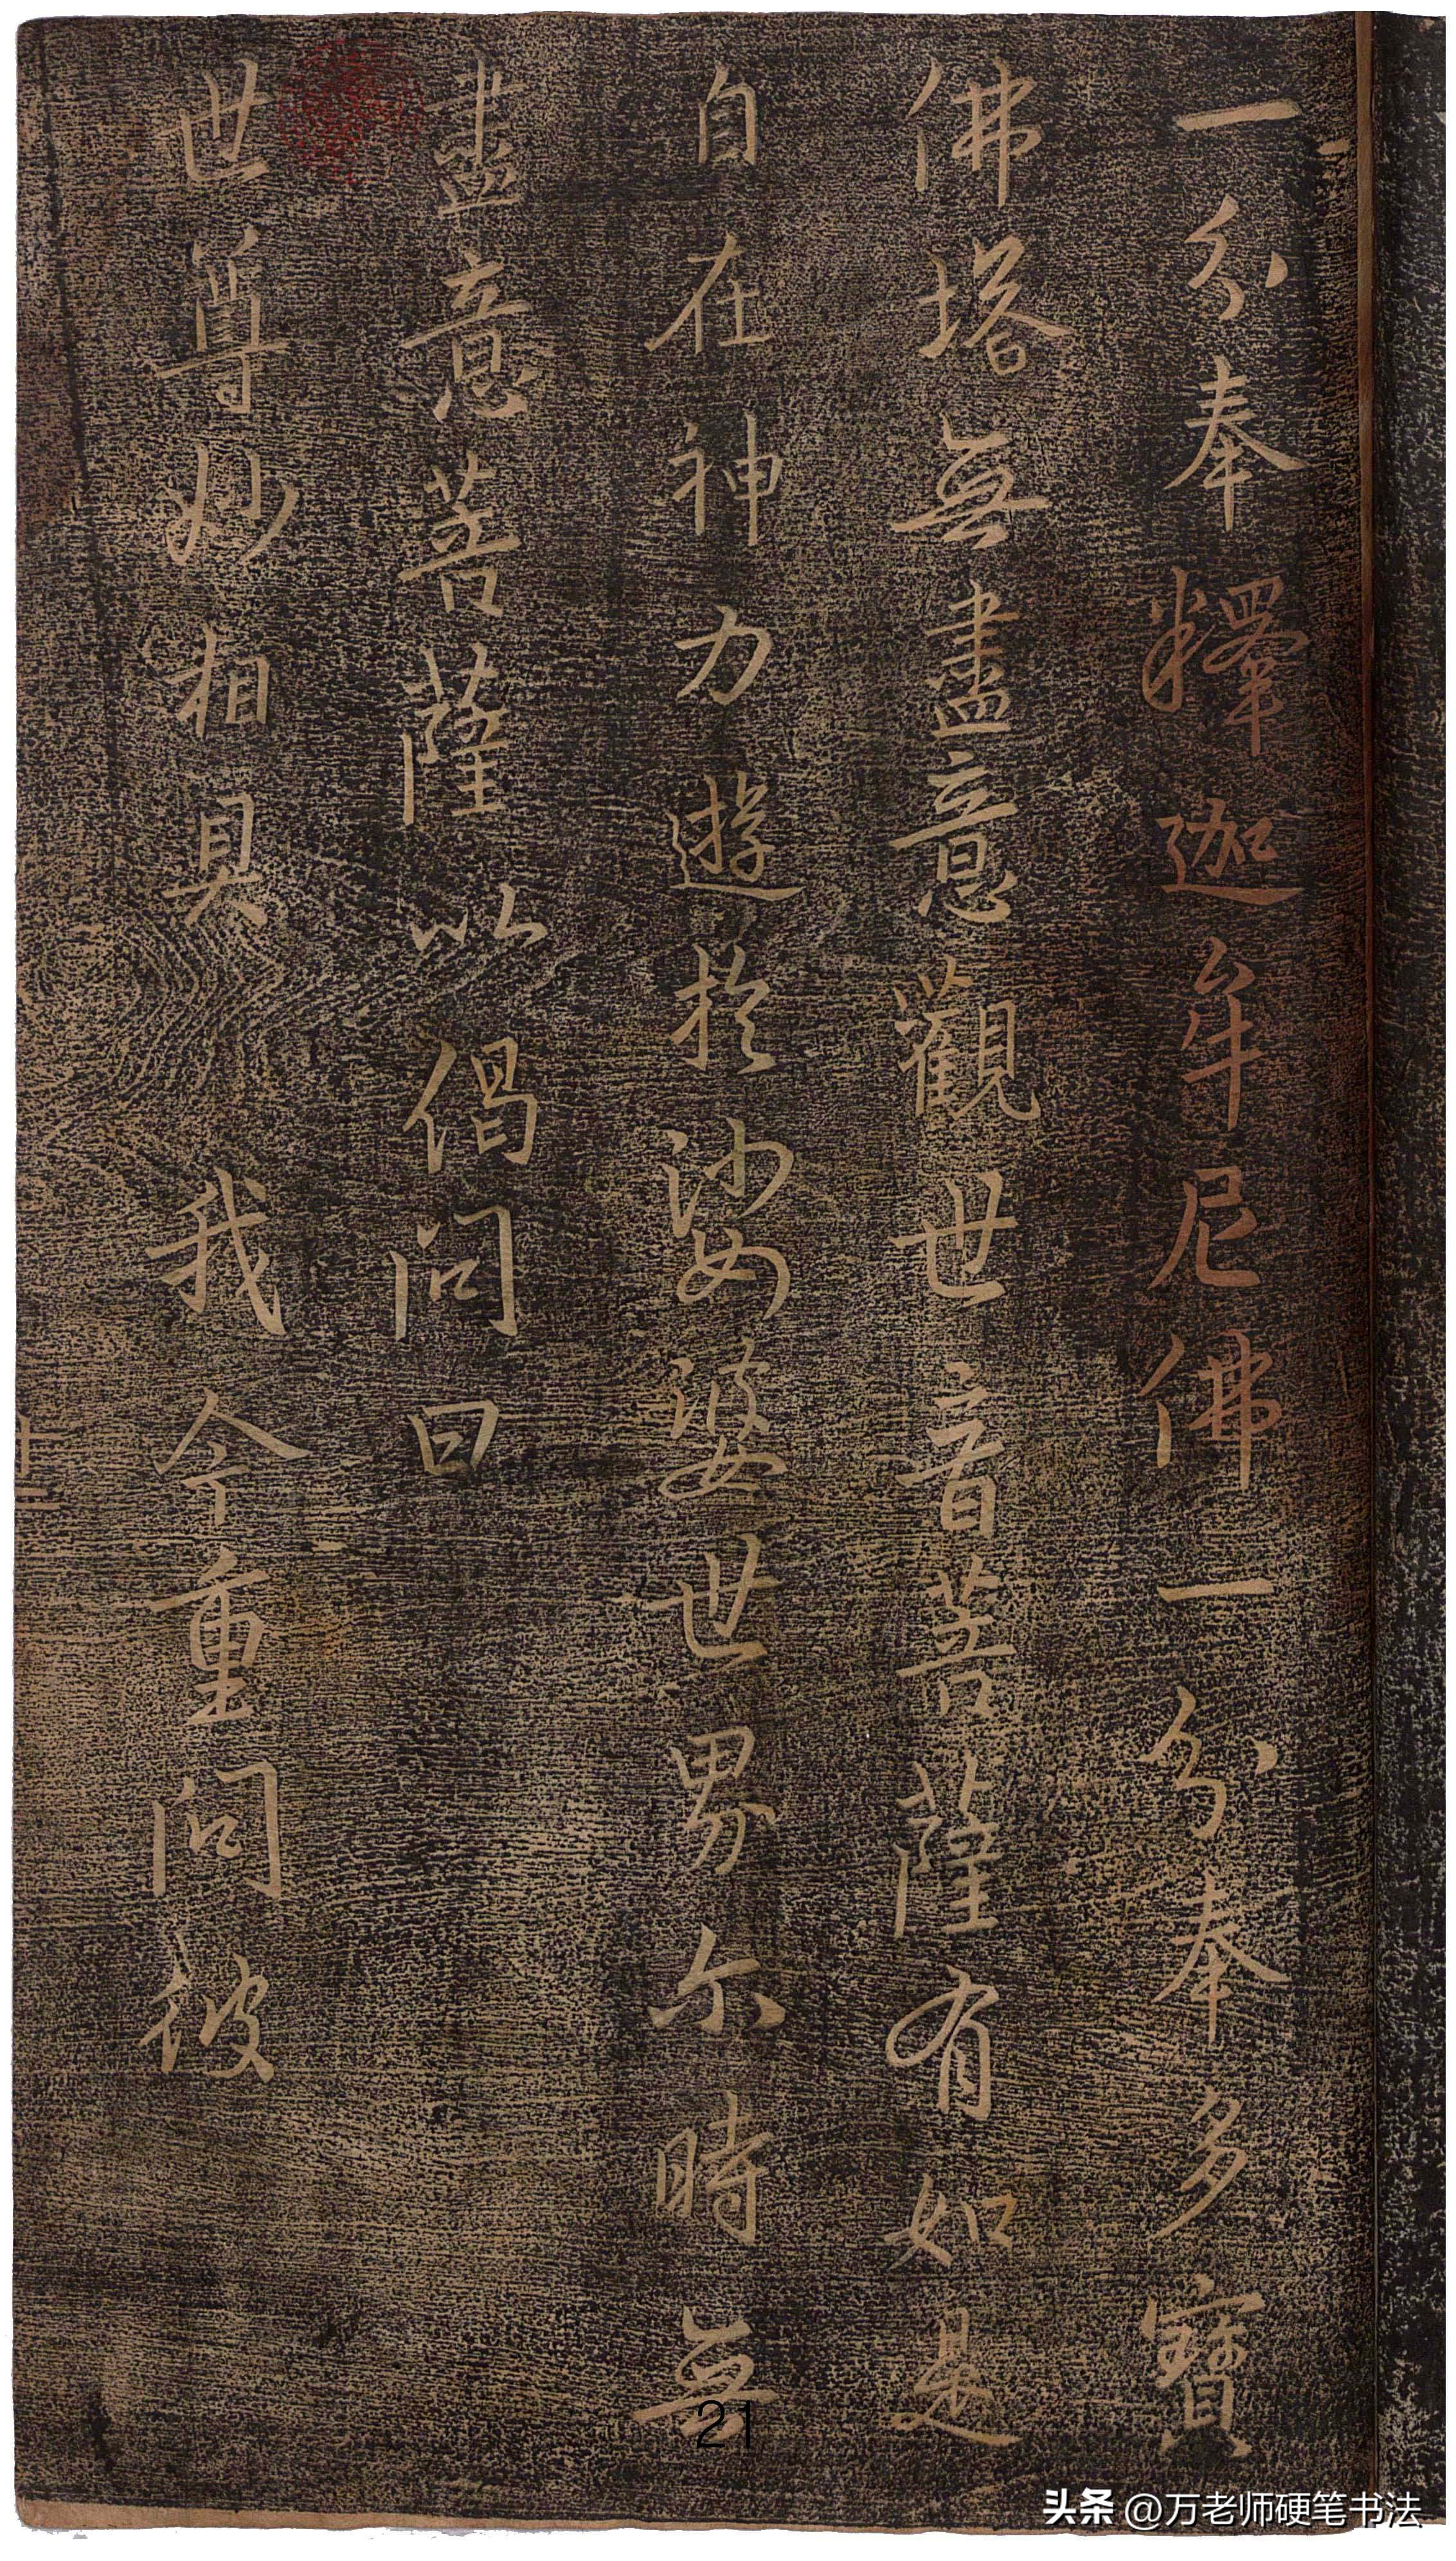 一分奉釋迦牟尼佛一分奉多寶
佛塔無盡意觀世音菩薩有如是
自在神力遊於娑婆世界尒時無
盡意菩薩以偈問曰
世尊妙相具 我今重問彼
21
头条 @万老师硬笔书法